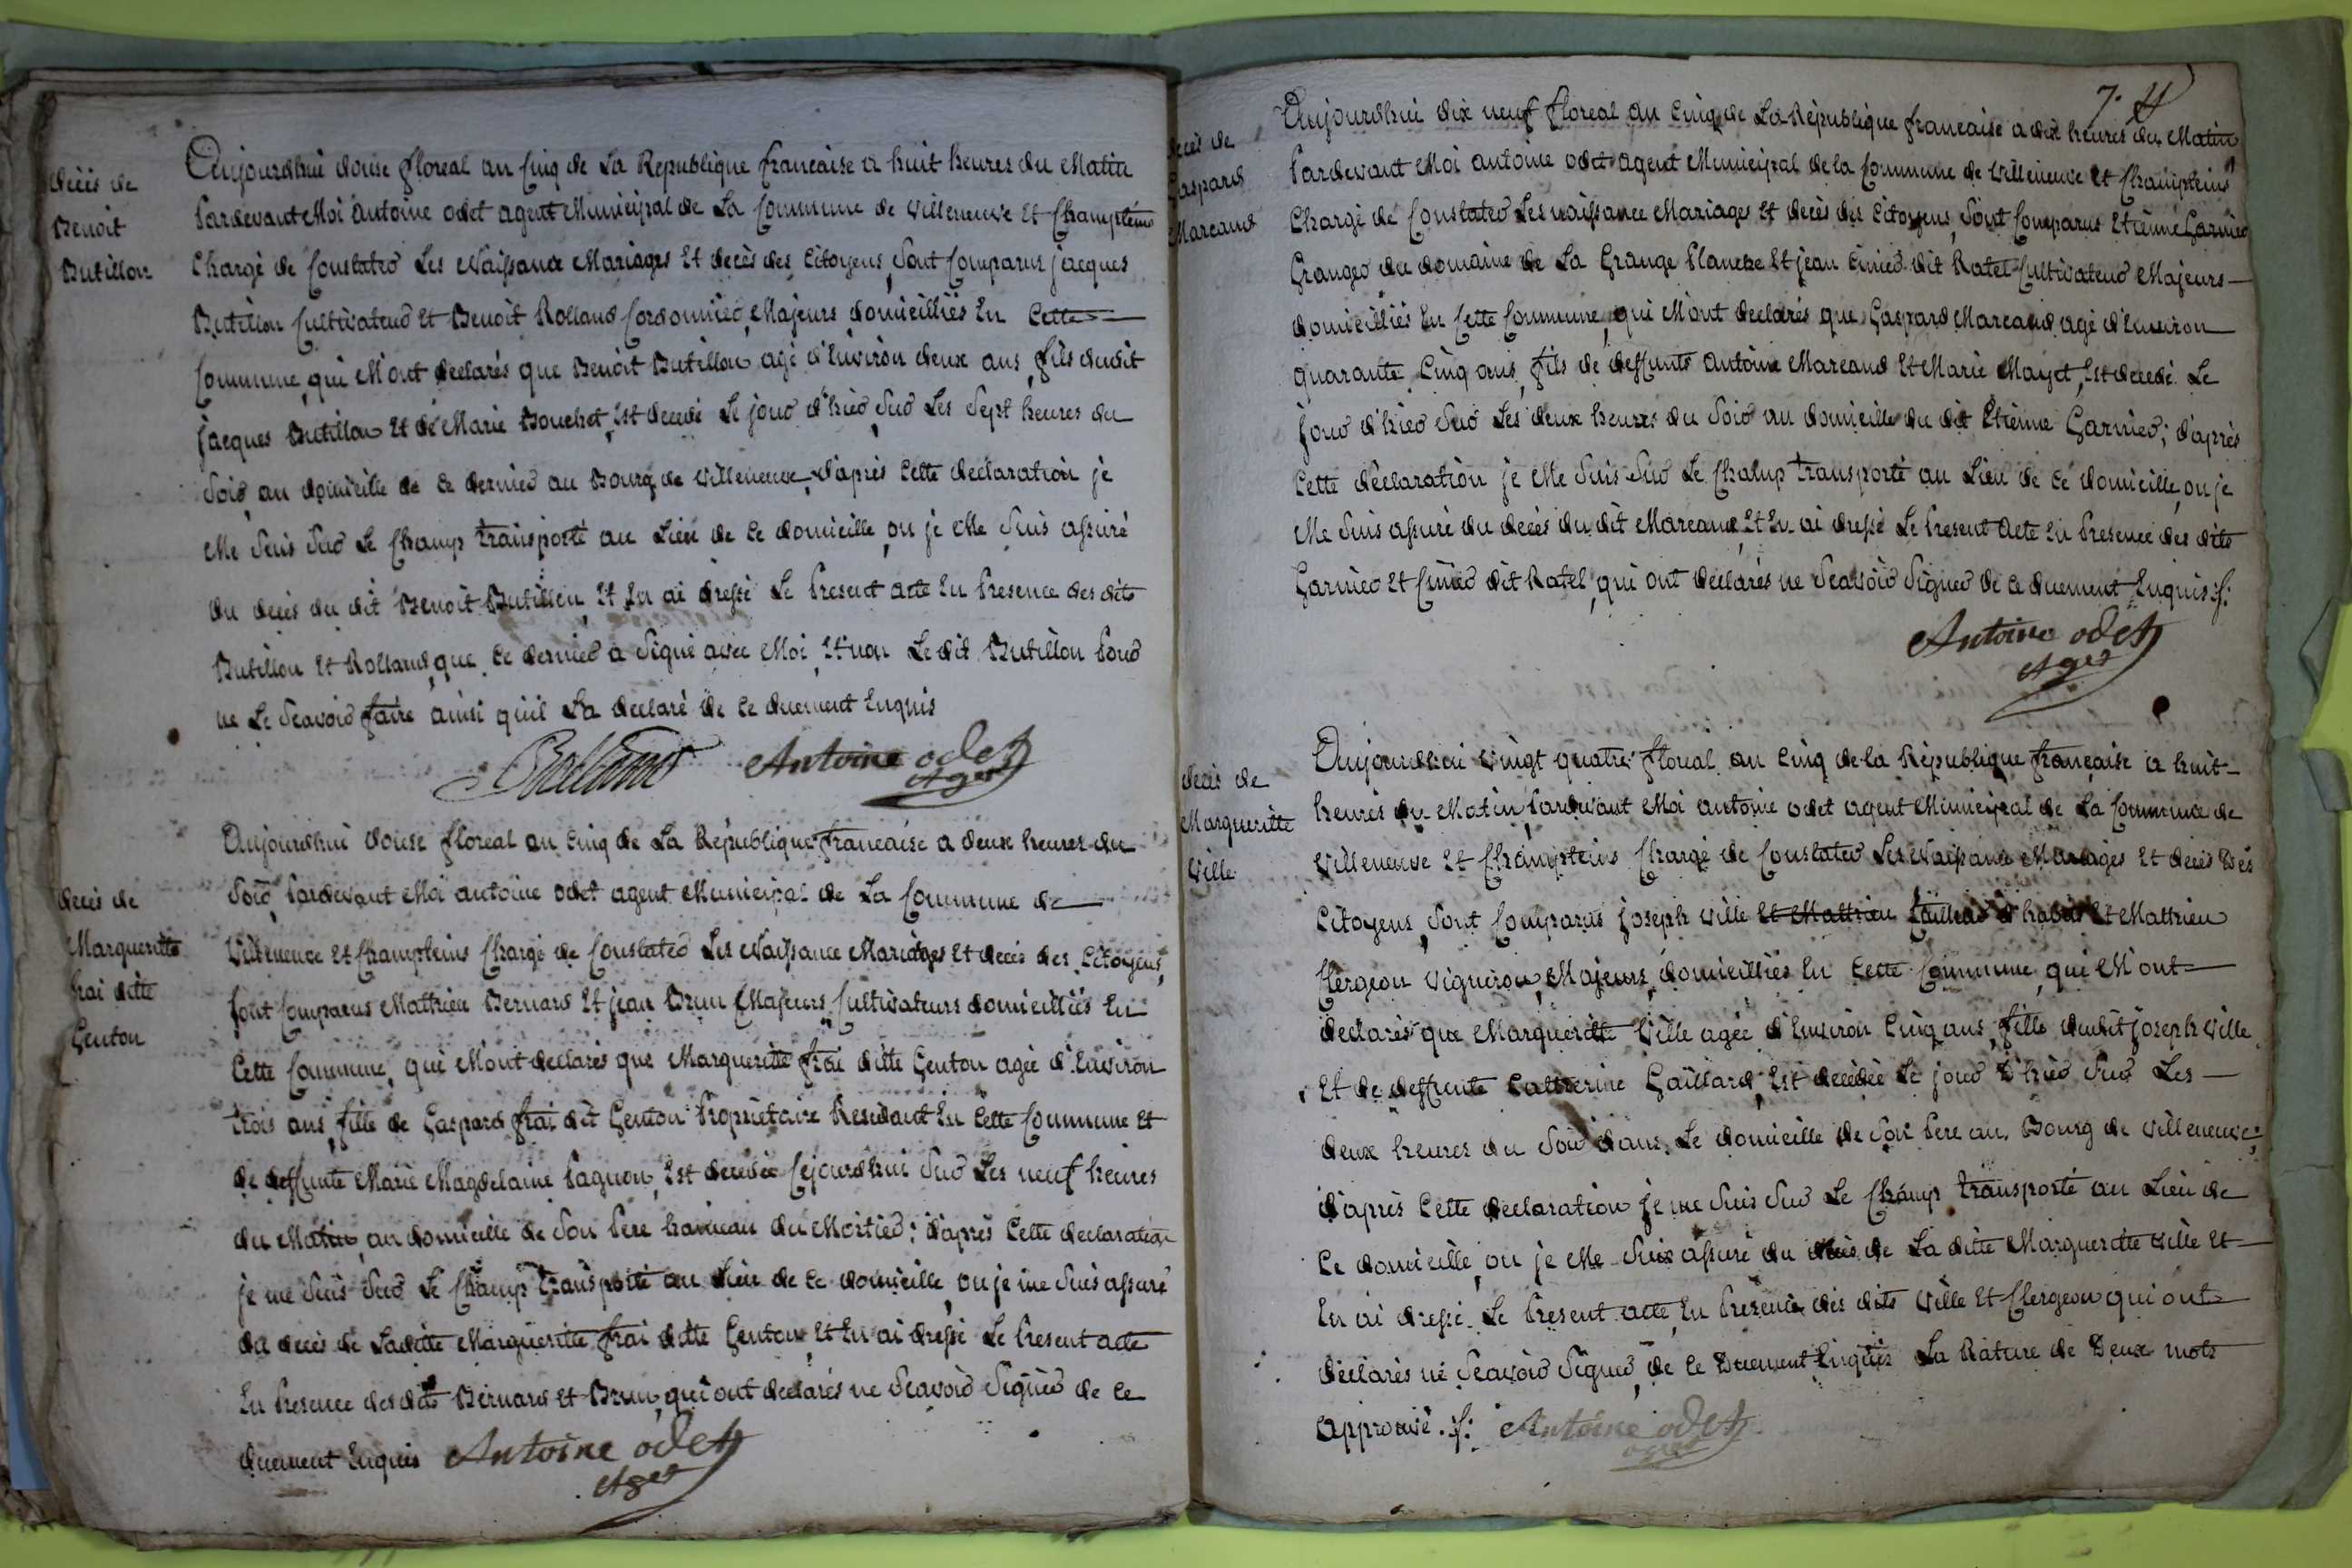 decès de
Benoit
Butillon
Aujourdhui douse floreal an Cinq de La Republique francaise a huit heures du Matin
Pardevant Moi antoine odet agent Municipal de La Commune de Villeneuve Et Champteins
Chargé de Constater Les Naissance Mariages Et decès des Citoyens, Sont Comparus jacques
Butillon Cultivateur Et Benoit Rolland Cordonnier, Majeurs domicilliés En Cette
Commune, qui M'ont declarés que Benoit Butillon, agé d'Environ deux ans, fils dudit
jacques Butillon Et de Marie Bouchet, Est decedé Le jour d'hier Sur Les Sept heures du
Soir, au domicille de Ce dernier au Bourg de Villeneuve, d'après Cette declaration je
Me Suis Sur Le Champ transporté au Lieu de Ce domicille, ou je Me Suis assuré
du decès du dit Benoit Butillon, Et En ai dressé Le Present acte En Presence des dits
Butillon Et Rolland, que Ce dernier a Signé avec Moi, Et non Le dit Butillon Pour
ne Le Scavoir faire ainsi quil La declaré de Ce duement Enquis
Rolland Antoine odet
Agent
decès de
Margueritte
frai ditte
Genton
Aujourdhui douse floreal an Cinq de La Republique francaise a deux heures du
Soir, Pardevant Moi antoine odet agent Municipal de La Commune de
Villeneuve Et Champteins Chargé de Constater Les Naissance Mariages Et decès des Citoyens,
Sont Comparus Mathieu Bernard Et jean Brun Majeurs Cultivateurs domicilliés En
Cette Commune, qui M'ont declarés que Margueritte frai ditte Genton agée d'Environ
trois ans, fille de Gaspard frai dit Genton Propriétaire Residant En Cette Commune Et
de deffunte Marie Magdelaine Pagnon, Est decedée Cejourdhui Sur Les neuf heures
du Matin, au domicille de Son Pere hameau du Mortier; d'après Cette declaration
je me Suis Sur Le Champ transporté au Lieu de Ce domicille, ou je me Suis assuré
du decès de Laditte Margueritte frai ditte Genton, Et En ai dressé Le Present acte
En Presence desdits Bernard Et Brun, qui ont declarés ne Scavoir Signer de Ce
duement Enquis Antoine odet
Agent
7.
decès de
Gaspard
Marcand
Aujourdhui dix neuf floreal an Cinq de La Republique francaise a dix heures du Matin
Pardevant Moi antoine odet agent Municipal de la Commune de Villeneuve Et Champteins
Chargé de Constater Les naissance Mariages Et decès des Citoyens, Sont Comparus Etienne Garnier
Granger du domaine de La Grange Planche Et jean Cinier dit Ratel Cultivateur Majeurs
domicilliés En Cette Commune, qui M'ont declarés que Gaspard Marcand agé d'Environ
quarante Cinq ans, fils de deffunts Antoine Marcand Et Marie Mayet, Est decedé Le
jour d'hier Sur Les deux heures du Soir au domicille du dit Etienne Garnier; d'après
Cette declaration je Me Suis Sur Le Champ transporté au Lieu de Ce domicille, ou je
Me Suis assuré du decès du dit Marcand, Et En ai dressé Le Present Acte En Presence des dits
Garnier Et Cinier dit Ratel, qui ont declarés ne Scavoir Signer de Ce duement Enquis
Antoine odet
Agent
decès de
Margueritte
Ville
Aujourdhui Vingt quatre floreal an Cinq de la Republique francaise a huit
heures du Matin, Pardevant Moi antoine odet agent Municipal de La Commune de
Villeneuve Et Champteins Chargé de Constater Les Naissance Mariages Et decès Des
Citoyens, Sont Comparus joseph Ville Et Mathieu Tailleur d'habits Et Mathieu
Clergeon Vigneron, Majeurs, domicilliés En Cette Commune, qui M'ont
declarés que Margueritte Ville agée d'Environ Cinq ans, fille dudit joseph Ville
Et de deffunte Catherine Gaillard, Est decedée Le jour d'hier Sur Les
deux heures du Soir dans Le domicille de Son Pere au Bourg de Villeneuve;
d'après Cette declaration je me Suis Sur Le Champ transporté au Lieu de
Ce domicille, ou je Me Suis assuré du decès de La ditte Margueritte Ville Et
En ai dressé Le Present acte, En Presence des dits Ville Et Clergeon qui ont
declarés ne Scavoir Signer, de Ce Duement Enquis La Rature de Deux mots
approuvé. Antoine odet
agent